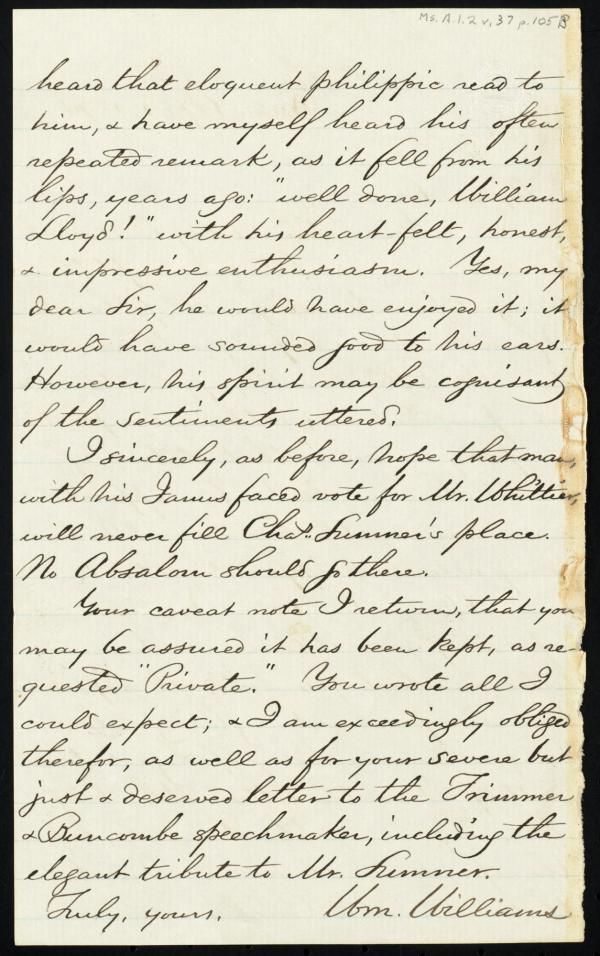 Ms. A.1.2 v.37 p.105B
heard that eloquent philippic read to
him, & have myself heard his often
repeated remark, as it fell from his
lips, years ago: "well done, William
Lloyd!" with his heart-felt, honest,
& impressive enthusiasm. Yes, my
dear Sir, he would have enjoyed it; it
would have sounded good to his ears.
However, his spirit may be cognisant
of the sentiments uttered.
I sincerely, as before, hope that man,
with his Janus faced vote for Mr. Whittier,
will never fill Chas. Sumner's place.
No Absalom should go there.
Your caveat note I return, that you
may be assured it has been kept, as re-
quested "Private." You wrote all I
could expect; & I am exceedingly obliged
therefor, as well as for your severe but
just & deserved letter to the Trimmer
& Buncombe speechmaker, including the
elegant tribute to Mr. Sumner.
Truly, yours, Wm. Williams